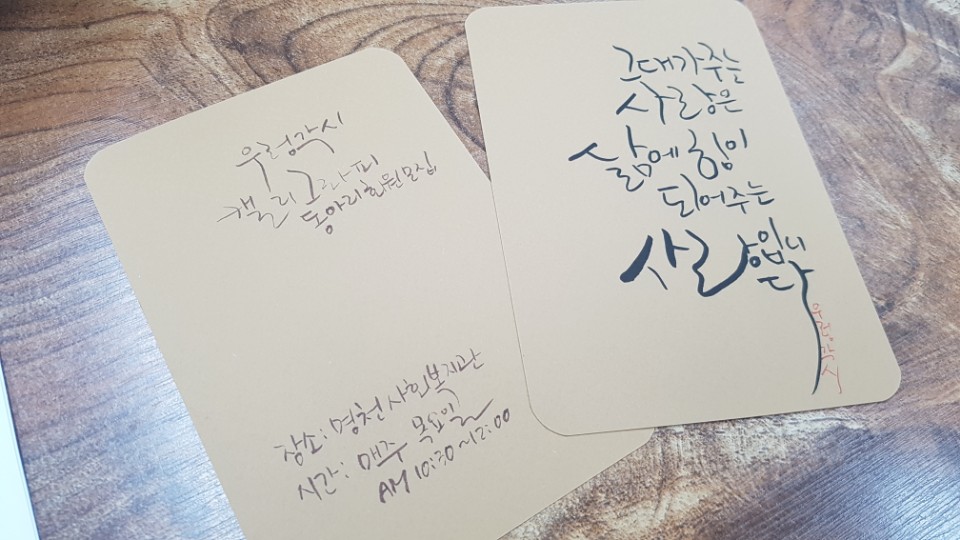 우렁각시
캘리그라피
동아리회원모집
장소: 명천사회복지관
시간: 매주 목요일
AM 10:30~12:00
그대가주는
사랑은
삶에 힘이
되어주는
사랑입니다
우렁각시